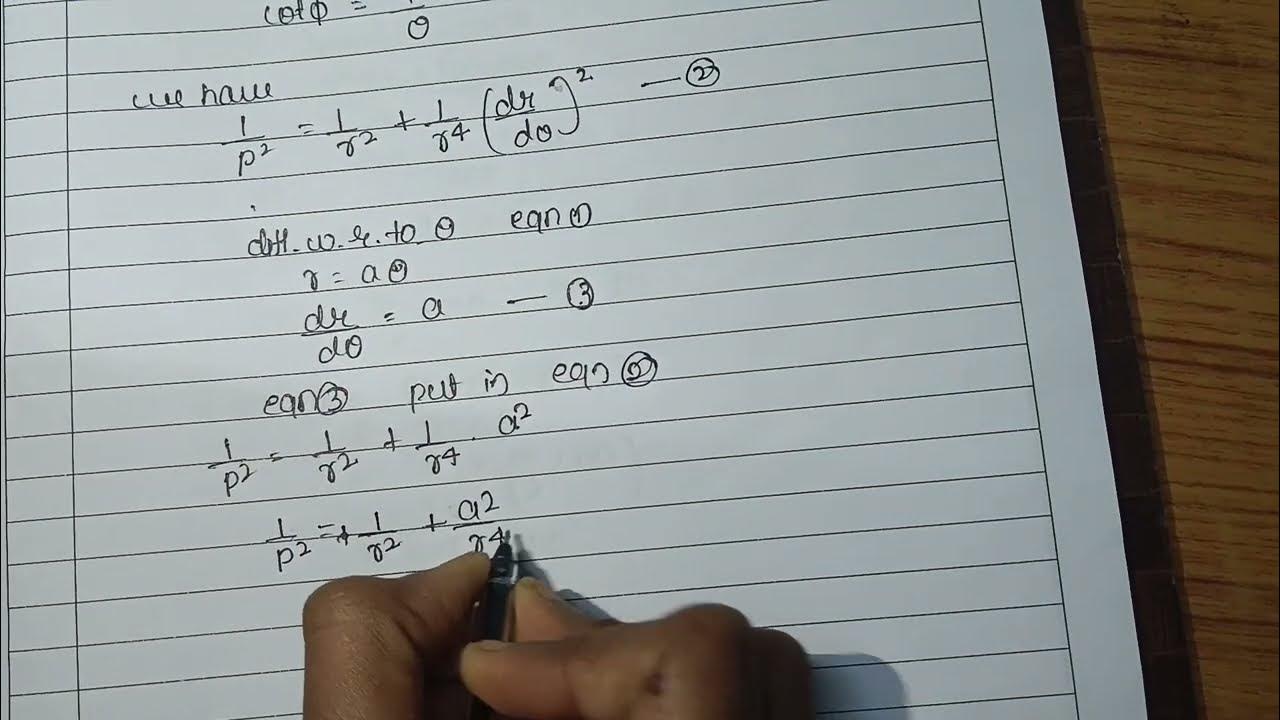 cotφ = 1/θ
we have
1/p² = 1/r² + 1/r⁴ (dr/dθ)² — ②
diff. w.r. to θ eqn ①
r = aθ
dr/dθ = a — ③
eqn ③ put in eqn ②
1/p² = 1/r² + 1/r⁴ . a²
1/p² = + 1/r² + a²/r⁴